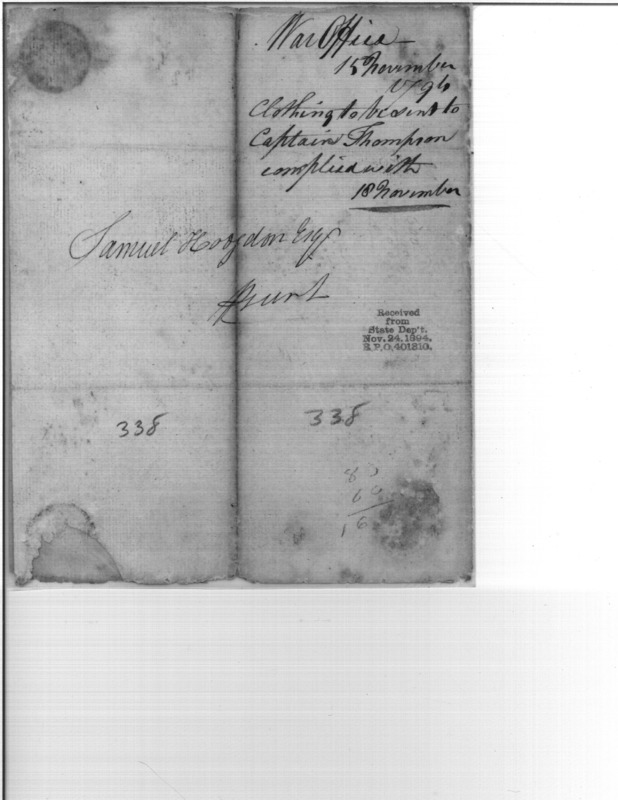 War Office
15 November
1794
Clothing to be sent to
Captain Thompson
complied with
18 November
Samuel Hodgdon Esqr
Received
from
State Dep't.
Nov. 24, 1894.
R.P.O. 401810.
338
338